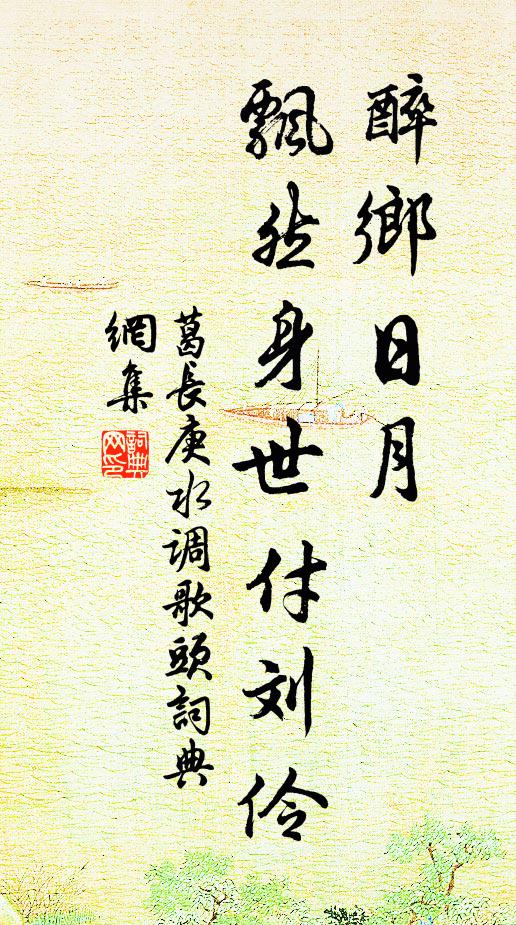 醉鄉日月
飄然身世付刘伶
葛長庚水调歌頭詞典
網集
詞典
网印